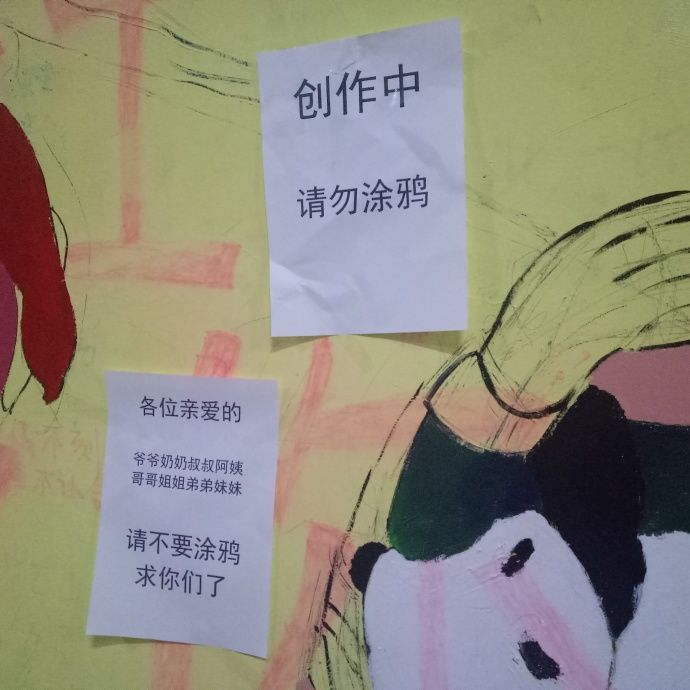 创作中
请勿涂鸦
各位亲爱的
爷爷奶奶叔叔阿姨
哥哥姐姐弟弟妹妹
请不要涂鸦
求你们了